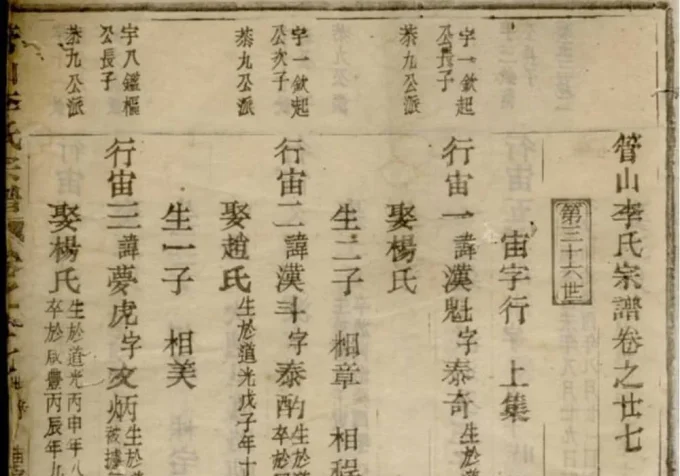 管山李氏宗譜卷之廿七
第三十六世
宙字行 上集
宇一欽起
公長子
恭九公派
行宙一諱漢魁字泰奇
娶楊氏
生二子 相章 相程
宇一欽起
公次子
恭九公派
行宙二諱漢斗字泰酌
生於
卒於
娶趙氏
生於道光戊子年十
生一子 相美
宇八鑑樞
公長子
恭九公派
行宙三諱夢虎字文炳
生於道
被據
娶楊氏
生於道光丙申年八
卒於咸豐丙辰年九